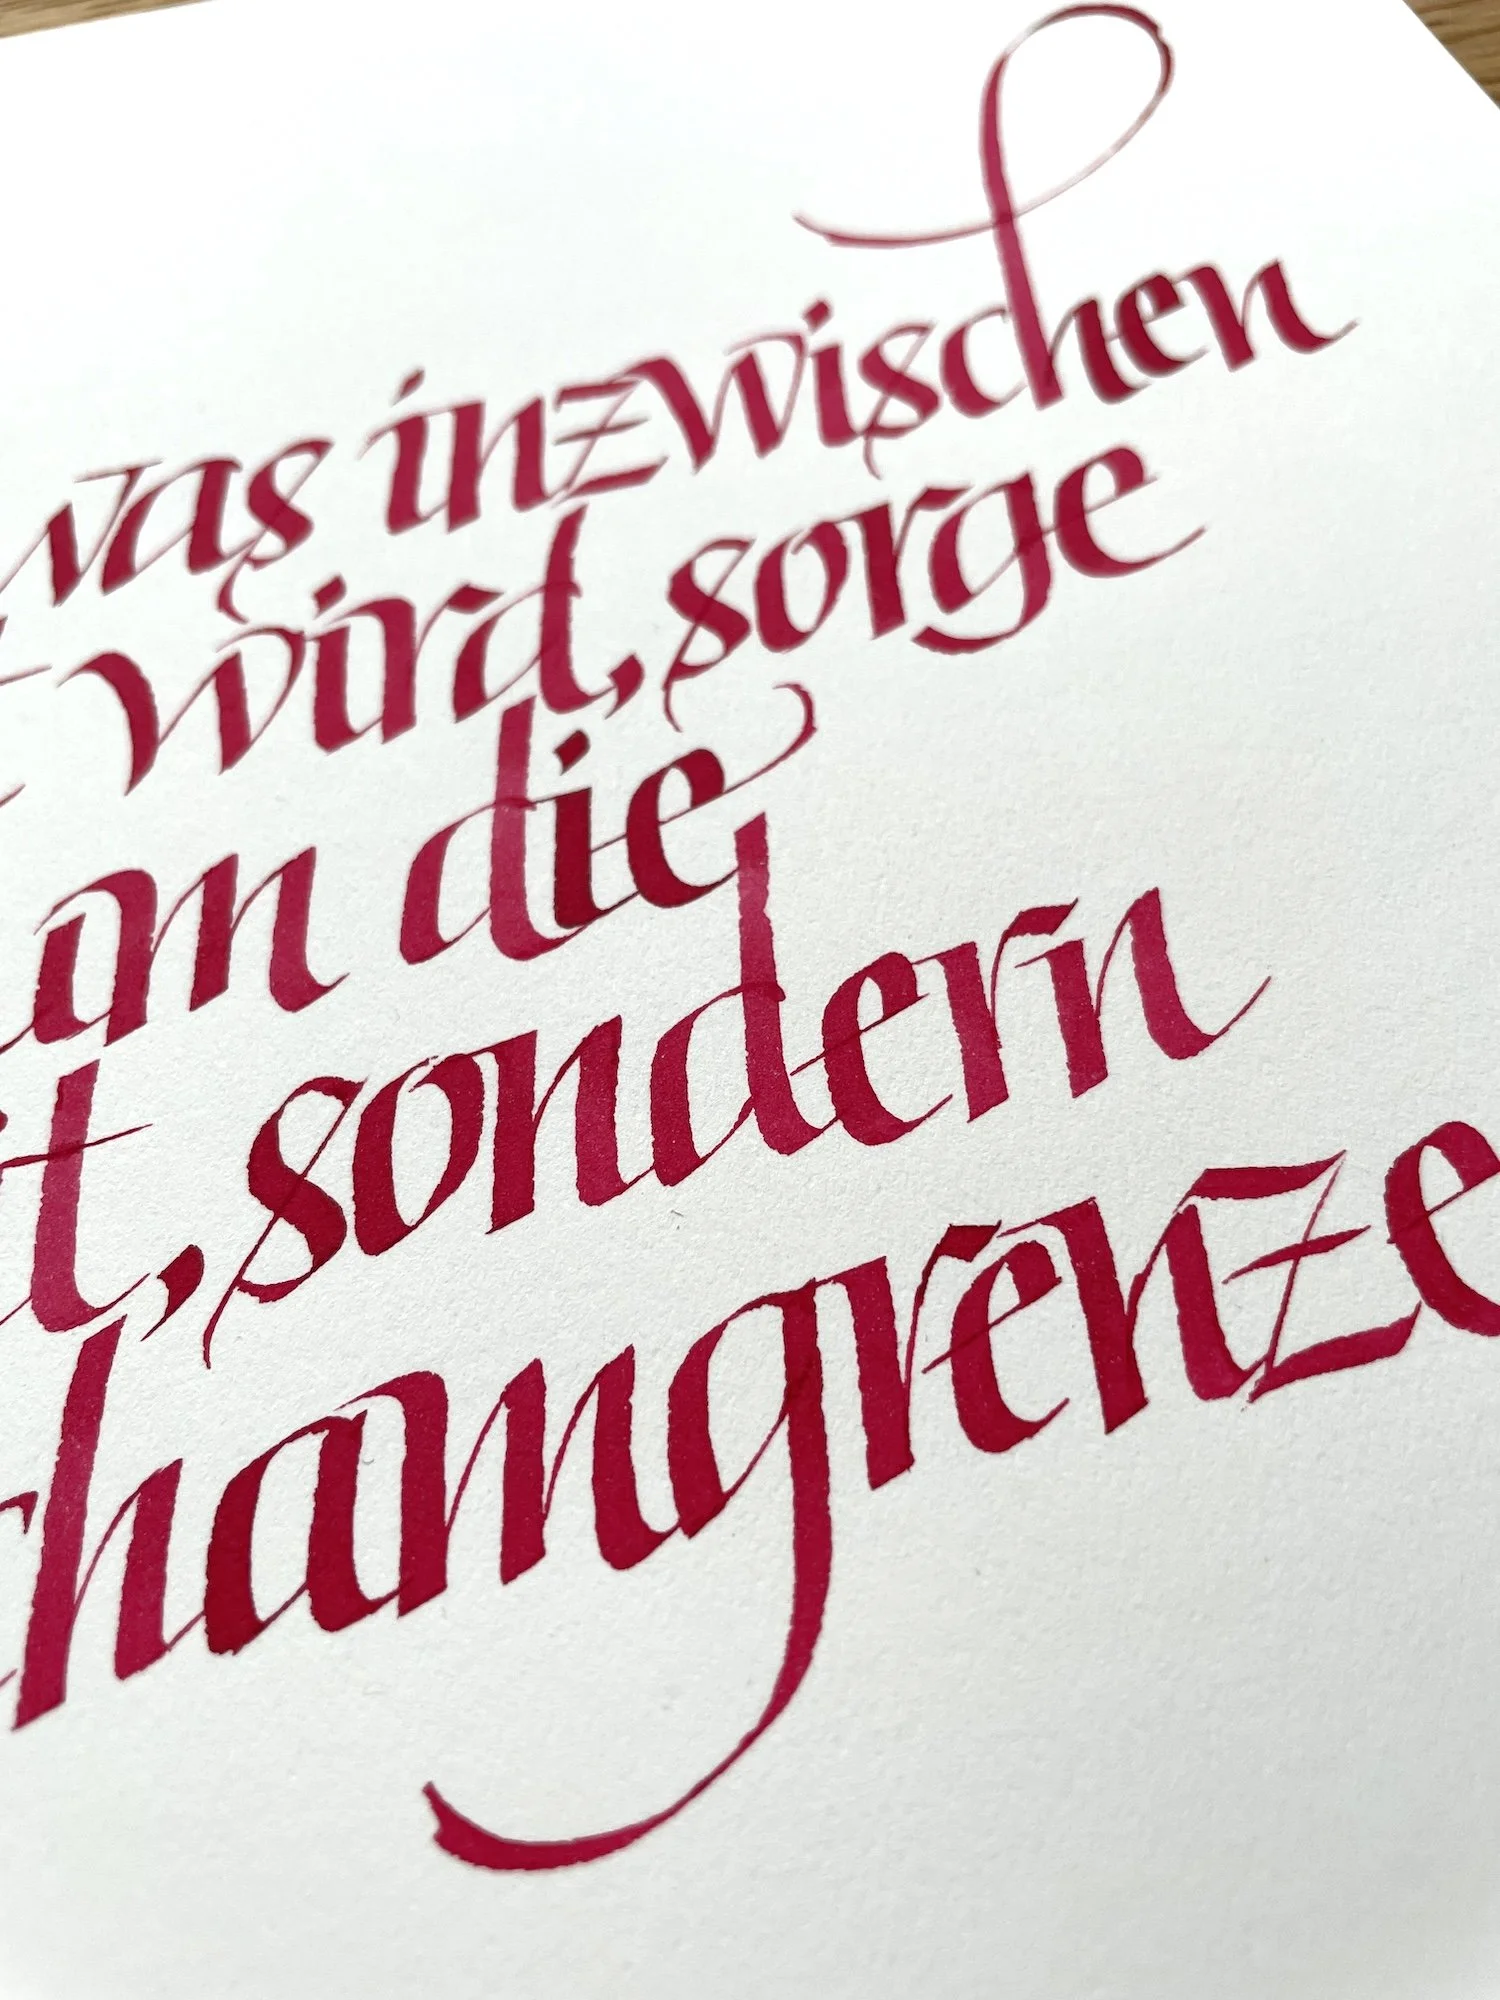 was inzwischen
t wird, sorge
um die
it, sondern
chamgrenze